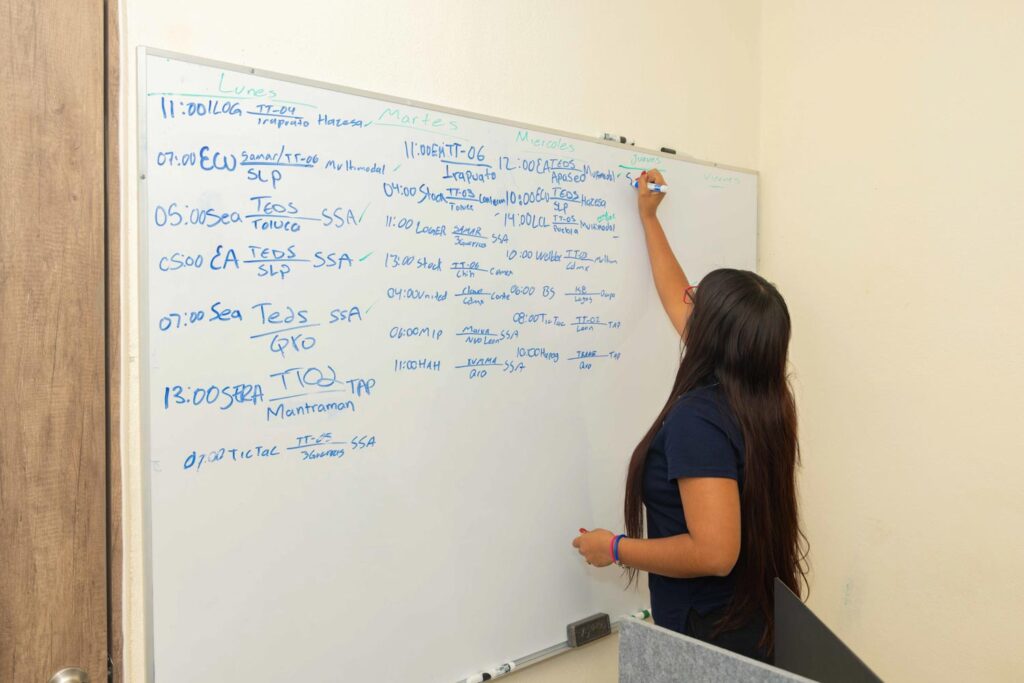 Lunes
11:00 ILOG TT-04 Hazesa
Irapuato
07:00 ECU Samar/TT-06 Multimodal
SLP
05:00 Sea TEOS SSA
Toluca
05:00 EA TEDS SSA
SLP
07:00 Sea Teds SSA
QRO
13:00 SERA TT02 TAP
Mantraman
07:00 TicTac TT-05 SSA
Martes
11:00 EM TT-06
Irapuato
04:00 Stock TT-03
Toluca
11:00 LOGER SAMAR SSA
13:00 Stock TT-06
Chih
04:00 United
Cdmx
06:00 MIP SSA
Nvo Leon
11:00 HAH SUMMA SSA
QRO
Miercoles
12:00 EA TEOS Multimodal
Apaseo
10:00 ECU TEOS Hazesa
SLP
14:00 LCL TT-05 Multimodal
Puebla
10:00
Cdmx
06:00 BS
Lagos
08:00 TicTac TT-02 TAP
Leon
10:00 TAP
QRO
Jueves
S
Viernes